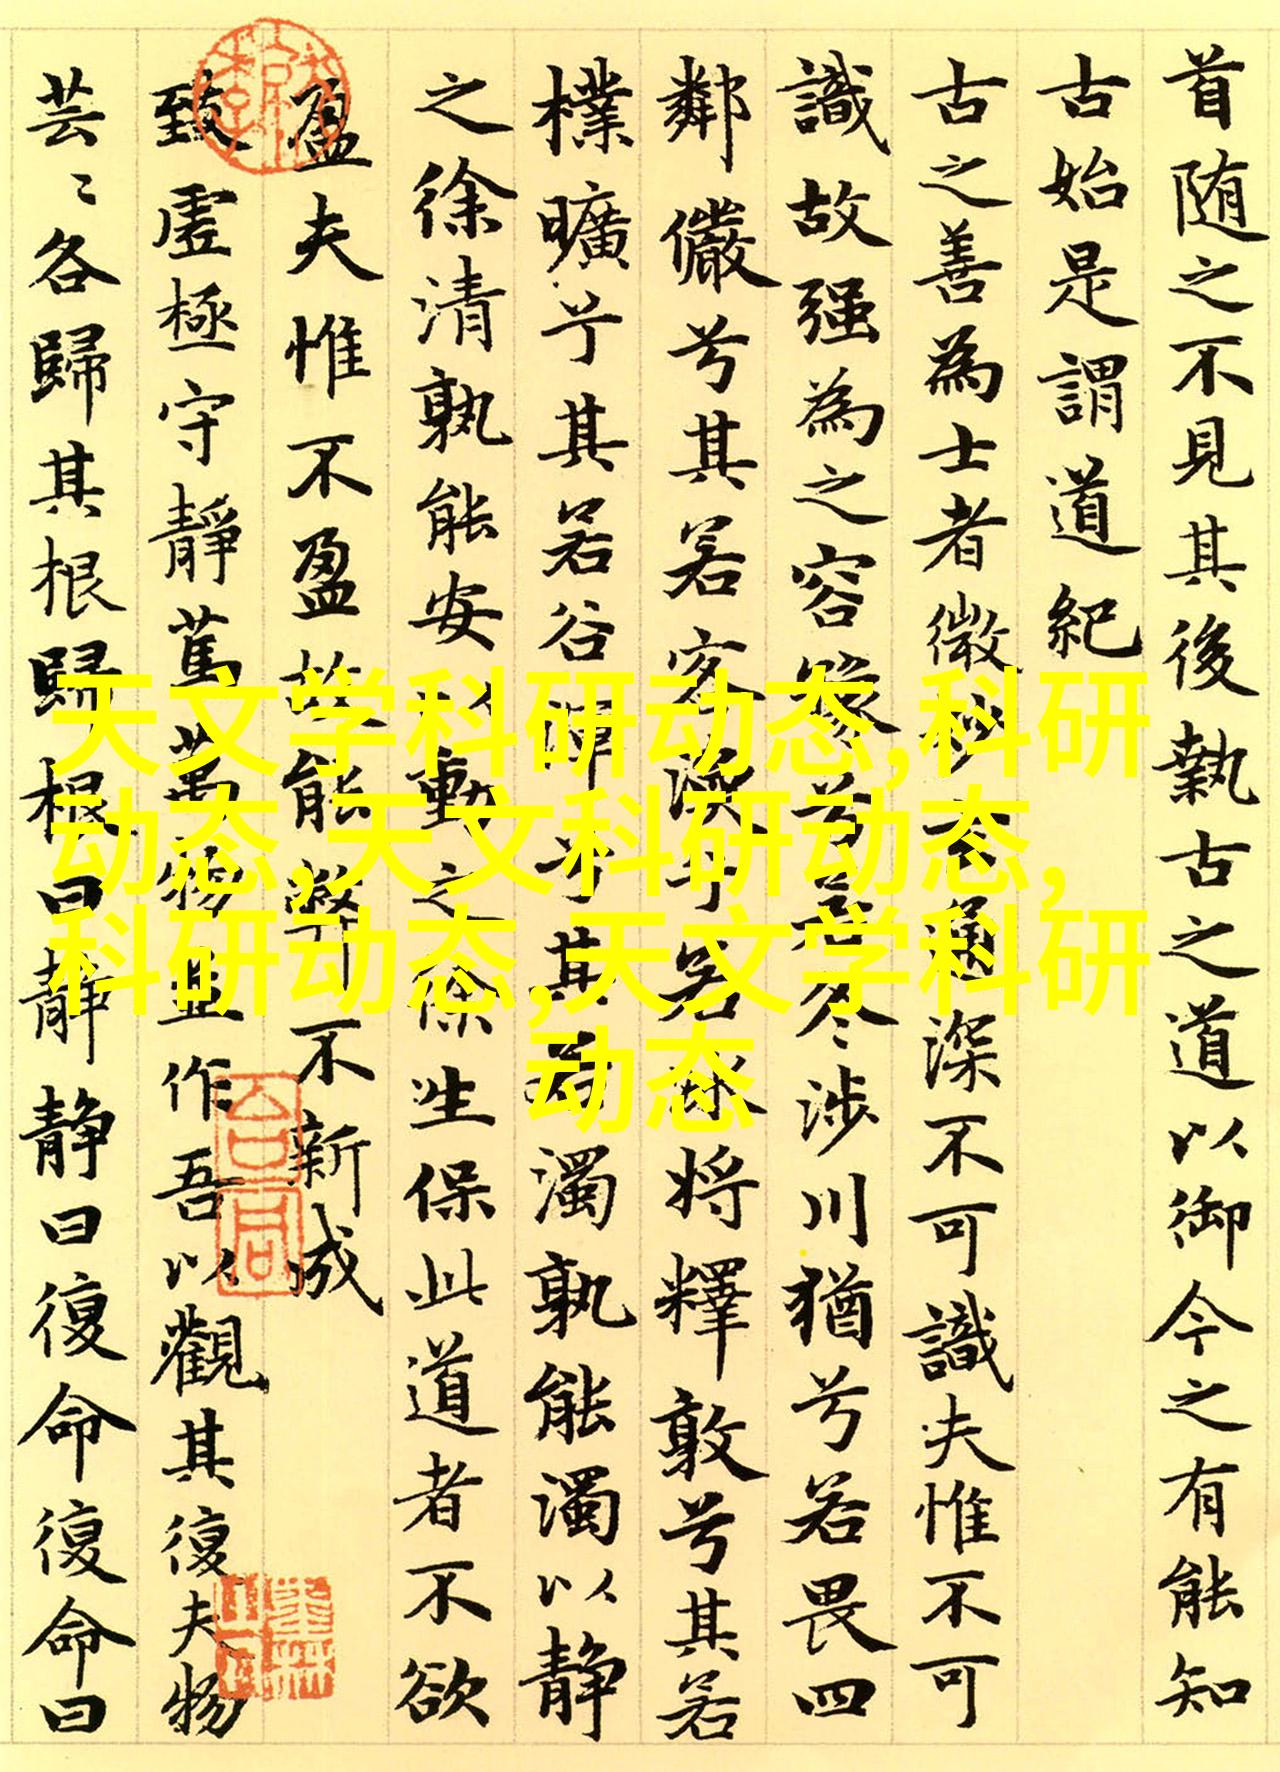 首随之不見其後執古之道以御今之有能知
古始是謂道紀
古之善為士者微妙玄通深不可識夫惟不可
識故强為之容豫兮若冬涉川猶兮若畏四
鄰儼兮其若客渙兮若冰將釋敦兮其若
樸曠兮其若谷渾兮其若濁孰能濁以静
之徐清孰能安以動之徐生保此道者不欲
盈夫惟不盈故能弊不新成
致虛極守靜篤萬物並作吾以觀其復夫物
芸〻各歸其根歸根曰靜静曰復命復命曰
天文学科研动态,科研
动态,天文科研动态,
科研动态,天文学科研
动态